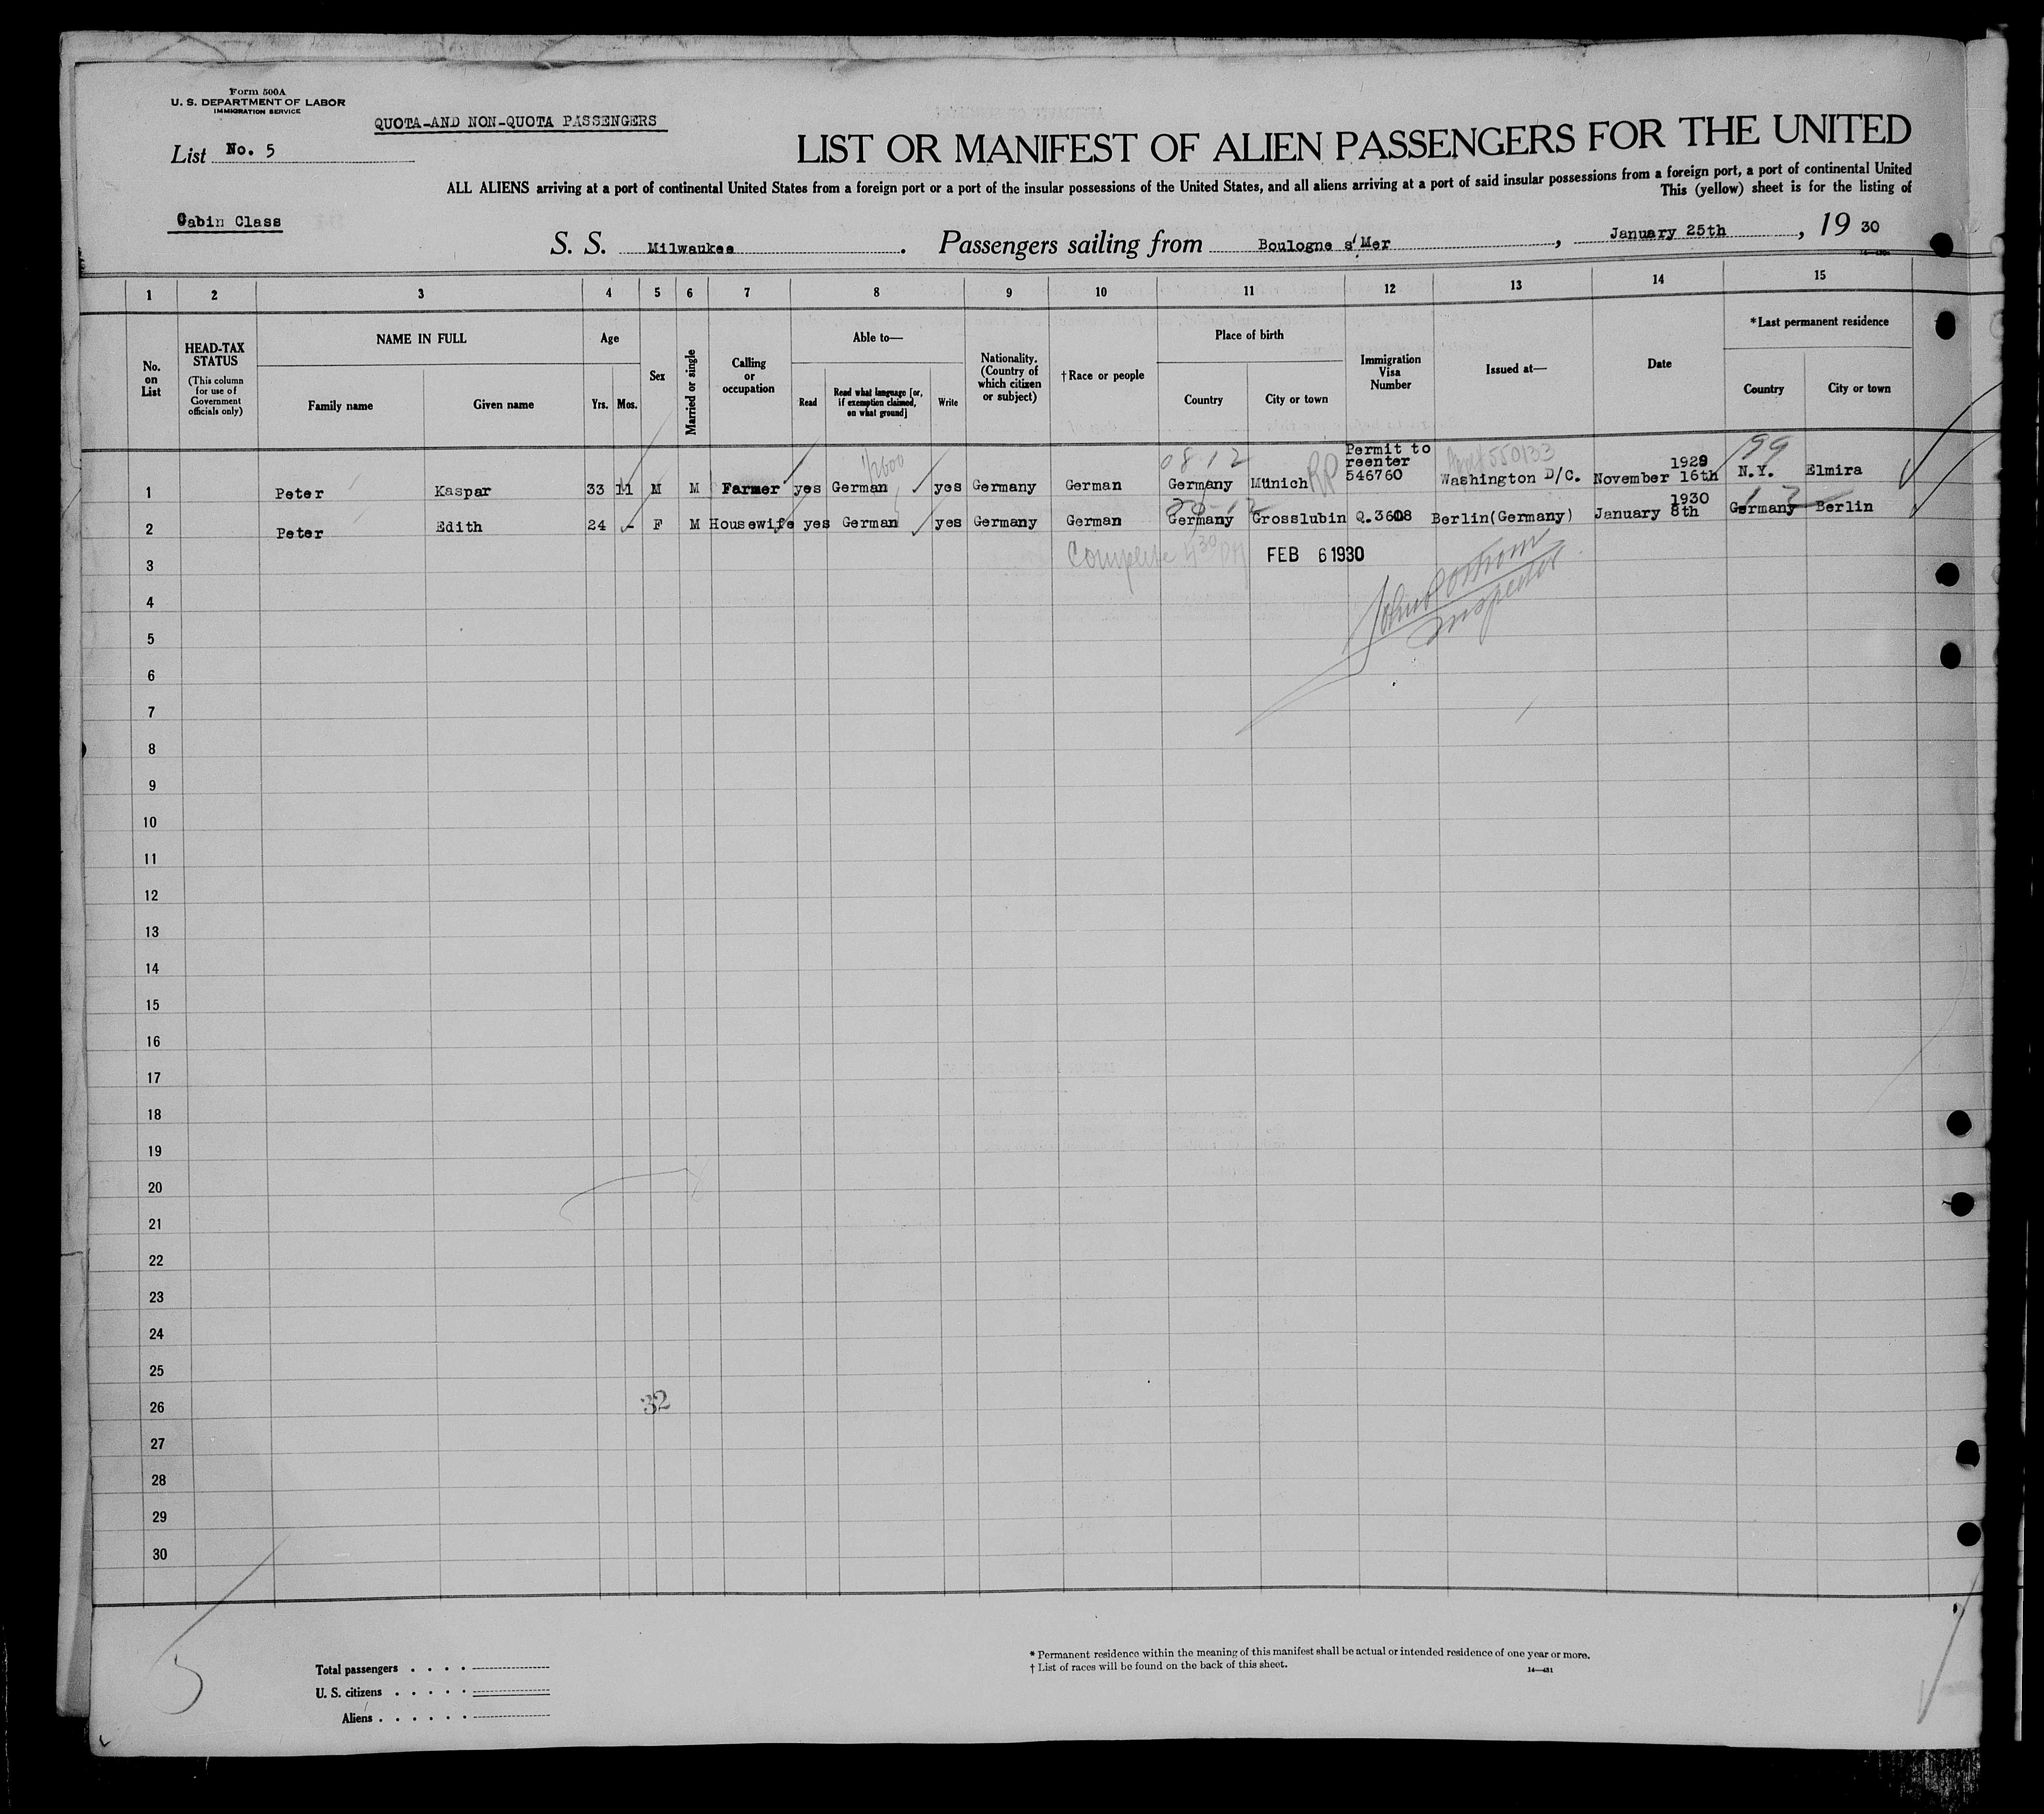 Form 500A
U. S. DEPARTMENT OF LABOR
IMMIGRATION SERVICE
QUOTA-AND NON-QUOTA PASSENGERS
List No. 5
LIST OR MANIFEST OF ALIEN PASSENGERS FOR THE UNITED
ALL ALIENS arriving at a port of continental United States from a foreign port or a port of the insular possessions of the United States, and all aliens arriving at a port of said insular possessions from a foreign port, a port of continental United
This (yellow) sheet is for the listing of
Cabin Class
S. S. Milwaukee. Passengers sailing from Boulogne s/Mer, January 25th, 19 30
1 2 3 4 5 6 7 8 9 10 11 12 13 14 15
No. on List
HEAD-TAX STATUS
(This column for use of Government officials only)
NAME IN FULL
Family name Given name
Age
Yrs. Mos.
Sex
Married or single
Calling or occupation
Able to—
Read
Read what language [or, if exemption claimed, on what ground]
Write
Nationality. (Country of which citizen or subject)
†Race or people
Place of birth
Country City or town
Immigration Visa Number
Issued at—
Date
*Last permanent residence
Country City or town
1 Peter Kaspar 33 11 M M Farmer yes German yes Germany German Germany Münich Permit to reenter 546760 Washington D/C. November 16th 1929 N.Y. Elmira
08 12
RP
550133
99
2 Peter Edith 24 - F M Housewife yes German yes Germany German Germany Grosslubin Q.3608 Berlin(Germany) January 8th 1930 Germany Berlin
3 Complete 4 30 PM FEB 6 1930
Inspector
4
5
6
7
8
9
10
11
12
13
14
15
16
17
18
19
20
21
22
23
24
25
26
32
27
28
29
30
5
Total passengers
U. S. citizens
Aliens
* Permanent residence within the meaning of this manifest shall be actual or intended residence of one year or more.
† List of races will be found on the back of this sheet.
14—431